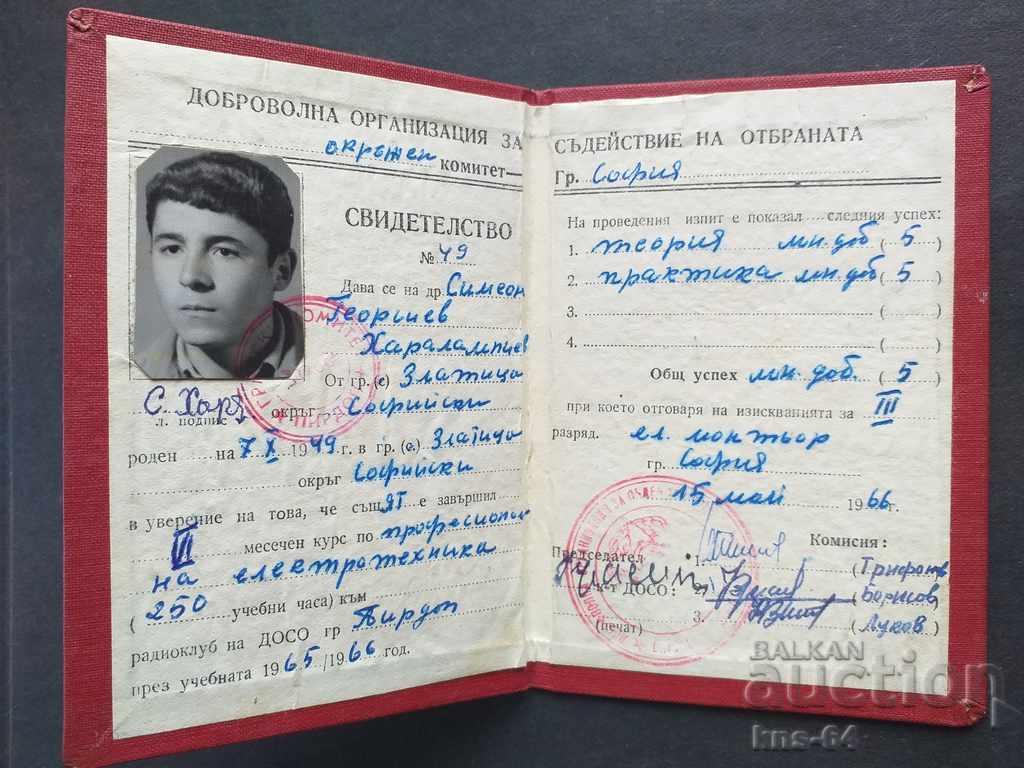 ДОБРОВОЛНА ОРГАНИЗАЦИЯ ЗА
окръжен комитет
СВИДЕТЕЛСТВО
№ 49
Дава се на др. Симеон
Георгиев
Харалампиев
От гр. (с) Златица
С. Хар
л. подпис
окръг Софийски
роден на 7 X 1949 г. в гр. (с.) Златица
окръг Софийски
в уверение на това, че същ ят е завършил
VI месечен курс по професионал
на електротехника
(250 учебни часа) към
радиоклуб на ДОСО гр Пирдоп
през учебната 1965/1966 год.
СЪДЕЙСТВИЕ НА ОТБРАНАТА
Гр. София
На проведения изпит е показал следния успех:
1. теория мн. доб (5)
2. практика мн. доб (5)
3. ( )
4. ( )
Общ успех мн. доб. (5)
при което отговаря на изискванията за III
разряд. ел. монтьор
гр. София
15 май 1966 г.
Комисия:
Председател
1. (Трифонов
к-т ДОСО: 2. (Борисов
(печат) 3. (Луков)
BALKAN
auction
kns-64